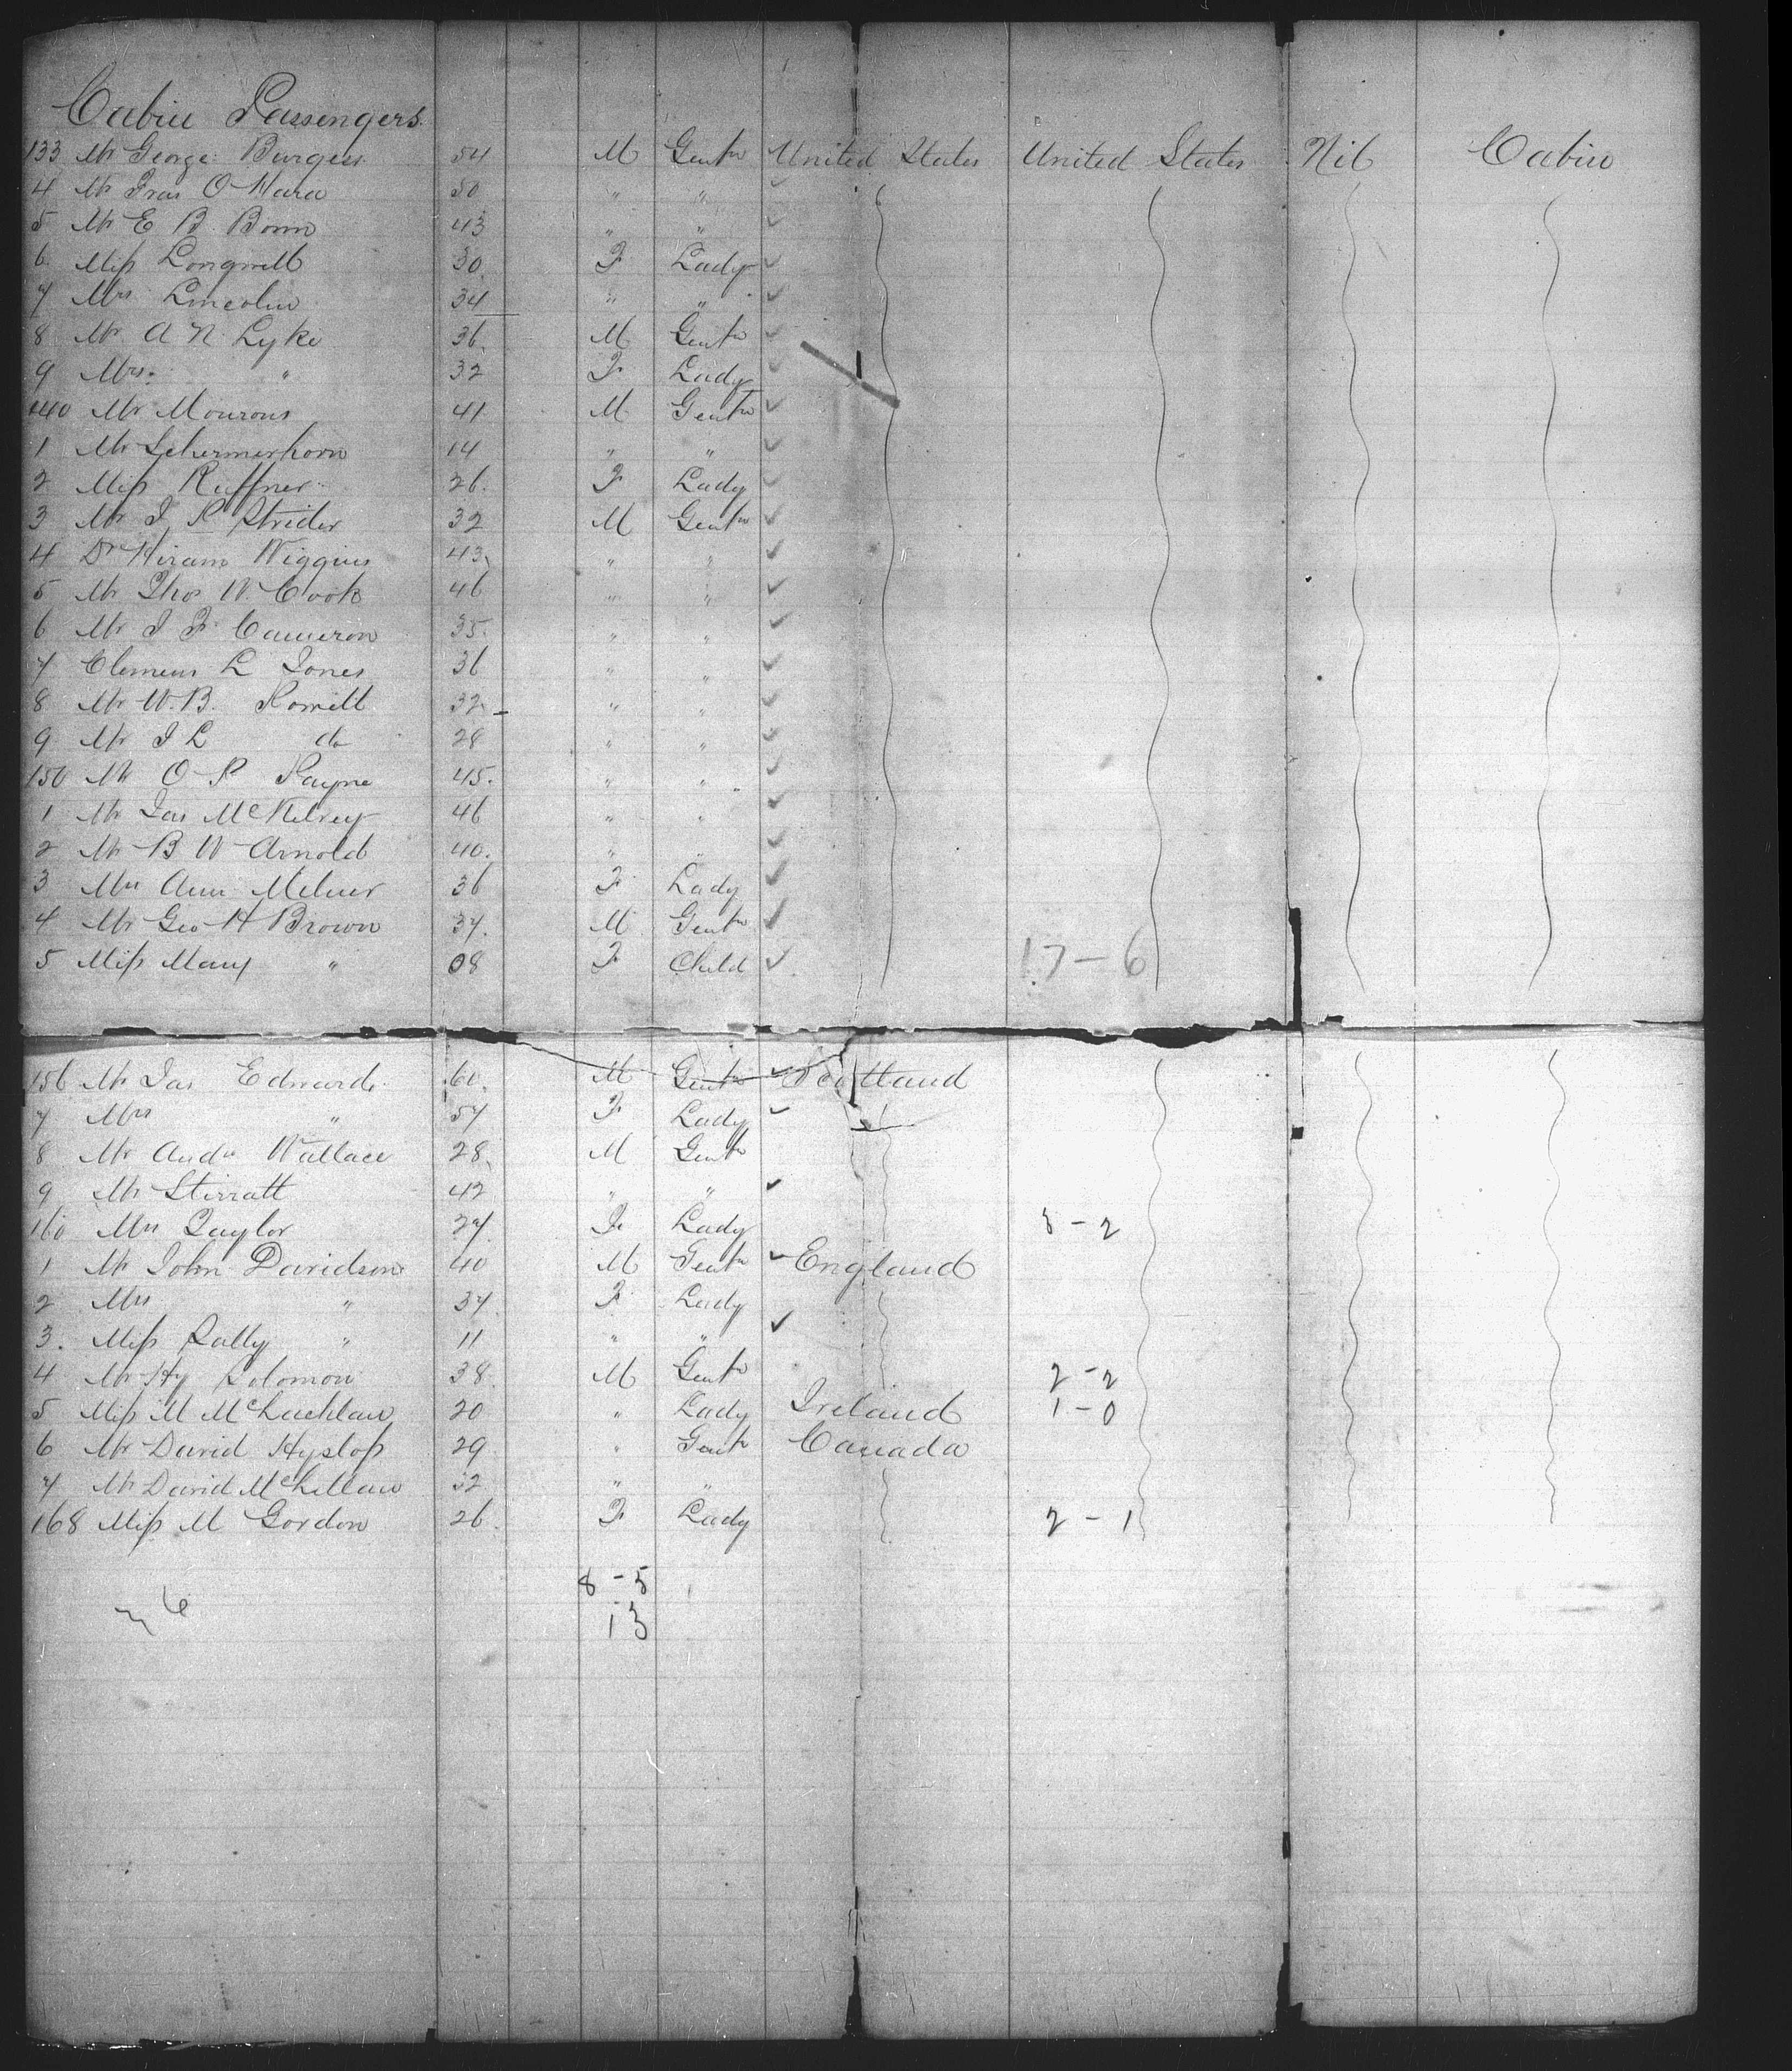 Cabin Passengers.
133 Mr George Burgess 54 M Gentn United States United States Nil Cabin
4 Mr Fras O'Hara 50 " "
5 Mr E B Bonn 43 " "
6 Miss Longwell 30 F Lady
7 Mrs Lincoln 34 " "
8 Mr A N Lyke 36 M Gentn
9 Mrs " 32 F Lady
140 Mr Mourons 41 M Gentn
1 Mr Schermerhorn 14 " "
2 Miss Ruffner 26 F Lady
3 Mr I P Strider 32 M Gentn
4 Dr Hiram Wiggins 43 " "
5 Mr Thos W. Cook 46 " "
6 Mr J F Cameron 35 " "
7 Clemens L Jones 36 " "
8 Mr W.B. 32 " "
9 Mr J L do 28 " "
150 Mr O P Payne 45 " "
1 Mr Jas McKelvey 46 " "
2 Mr B W Arnold 40 " "
3 Mrs Ann Milner 36 F Lady
4 Mr Geo H Brown 37 M Gentn
5 Miss Mary " 08 F Child 17-6
156 Mr Jas Edwards 60 M Gentn Scotland
7 Mrs " 57 F Lady
8 Mr Andw Wallace 28 M Gentn
9 Mr Stirratt 42 " "
160 Mrs Taylor 27 F Lady 3-2
1 Mr John Davidson 40 M Gentn England
2 Mrs " 37 F Lady
3. Miss Sally " 11 " "
4 Mr Hy Solomon 38 M Gentn 2-2
5 Miss M McLachlan 20 " Lady Ireland 1-0
6 Mr David Hyslop 29 " Gentn Canada
7 Mr David McLellan 32 " "
168 Miss M Gordon 26 F Lady 2-1
8-5
13